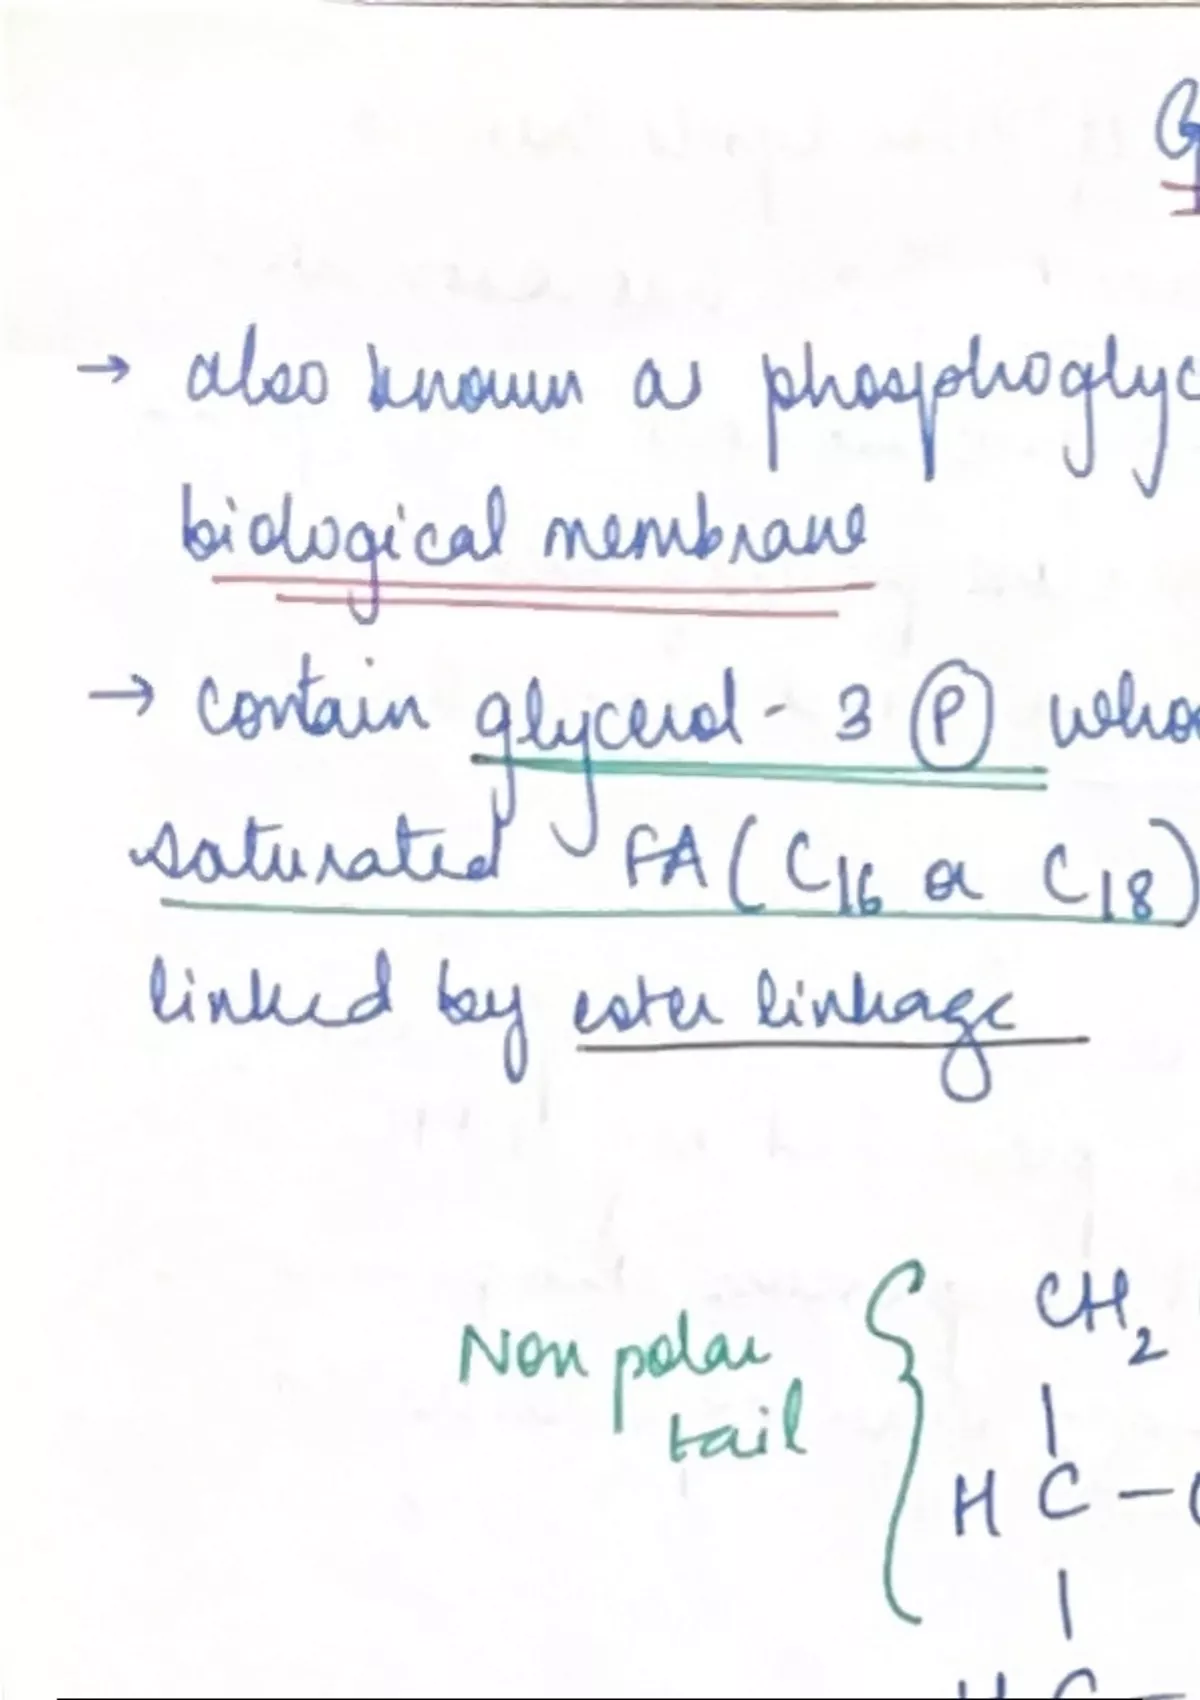 G
→ also known as phosphoglyc
biological membrane
→ contain glycerol - 3 (P) who
saturated FA (C16 or C18)
linked by ester linkage
Non polar
tail
CH2
H C -
H C -